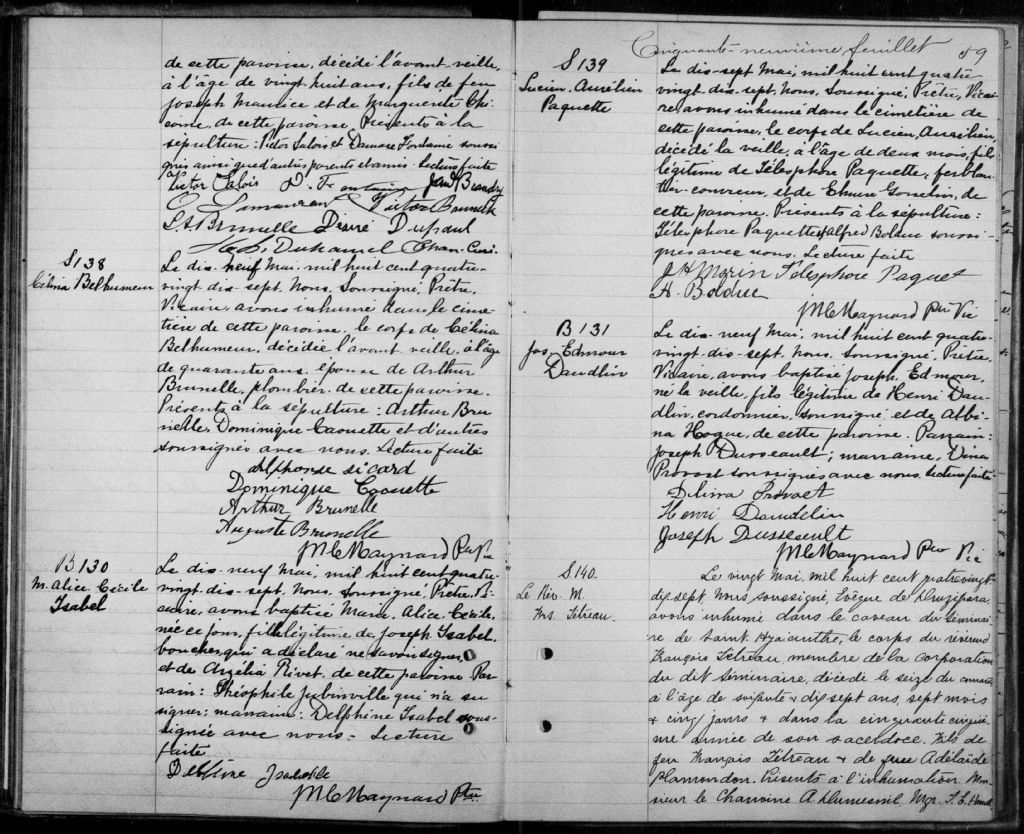 de cette paroisse, décédé l'avant veille,
à l'âge de vingt-huit ans, fils de feu
Joseph Maurice et de Marguerite Chi
coine, de cette paroisse. Présents à la
sépulture: Victor Salois et Damase Fontaine soussi
gnés ainsi que d'autres parents et amis. Lecture faite
Victor Salois D. Fontaine
Victor Brunelle
L. A. Brunelle Désiré Dufault
Duhamel Chan. Curé.
S 138
Célina Belhumeur
Le dix-neuf Mai, mil huit cent quatre-
vingt-dix-sept, Nous, Soussigné, Prêtre,
Vicaire, avons inhumé dans le cime-
tière de cette paroisse, le corps de Célina
Belhumeur, décédée l'avant veille, à l'âge
de quarante ans, épouse de Arthur
Brunelle, plombier, de cette paroisse.
Présents à la sépulture: Arthur Bru
nelle, Dominique Caouette et d'autres
soussignés avec nous. Lecture faite
Alphonse Sicard
Dominique Caouette
Arthur Brunelle
Auguste Brunelle
M C Maynard Ptre
B 130
M. Alice Cécile
Isabel
Le dix-neuf Mai, mil huit cent quatre-
vingt-dix-sept, Nous, Soussigné, Prêtre, Vi-
caire, avons baptisé Marie, Alice, Cécile,
née ce jour, fille légitime de Joseph Isabel,
boucher, qui a déclaré ne savoir signer,
et de Arzélia Rivet, de cette paroisse. Par
rain: Théophile Jubinville qui n'a su
signer; marraine: Delphine Isabel sous-
signée avec nous. Lecture
faite
Delfine Isabelle
M C Maynard Ptre
Cinquante-neuvième feuillet 59
S 139
Lucien, Aurélien
Paquette
Le dix-sept Mai, mil huit cent quatre
vingt-dix-sept, Nous, Soussigné, Prêtre, Vicai
re, avons inhumé dans le cimetière de
cette paroisse, le corps de Lucien, Aurélien,
décédé la veille, à l'âge de deux mois, fils
légitime de Télesphore Paquette, ferblan
tier-couvreur, et de Gosselin, de
cette paroisse. Présents à la sépulture:
Télesphore Paquette & Alfred Bolduc soussi-
gnés avec nous. Lecture faite
J H Morin Télésphore Paquet
A. Bolduc
M C Maynard Ptre Vic
B 131
Jos. Edmour
Daudlin
Le dix-neuf Mai, mil huit cent quatre-
vingt-dix-sept, Nous, Soussigné, Prêtre
Vicaire, avons baptisé Joseph, Edmour,
né la veille, fils légitime de Henri Dau
dlin, cordonnier, soussigné, et de Albi-
na Hogue, de cette paroisse. Parrain:
Joseph Dusseault; marraine,
Provost soussignés avec nous. Lecture faite
Delima Provost
Henri Daudelin
Joseph Dusseault
M C Maynard Ptre Vic
S 140.
Le Rév. M.
Frs. Tétreau.
Le vingt Mai, mil huit cent quatre vingt
dix sept Nous soussigné, Evêque de Druzipara
avons inhumé dans le caveau du Séminai
re de Saint Hyacinthe, le corps du révérend
François Tétreau, membre de la corporation
du dit Séminaire, décédé le seize du courant
à l'âge de soixante & dix sept ans, sept mois
& cinq jours & dans la cinquante cinquiè
me année de son sacerdoce. Fils de
feu François Tétreau & de feue Adélaïde
Plamondon. Présents à l'inhumation Mon
sieur le Chanoine A. Dumesnil, Mgr.